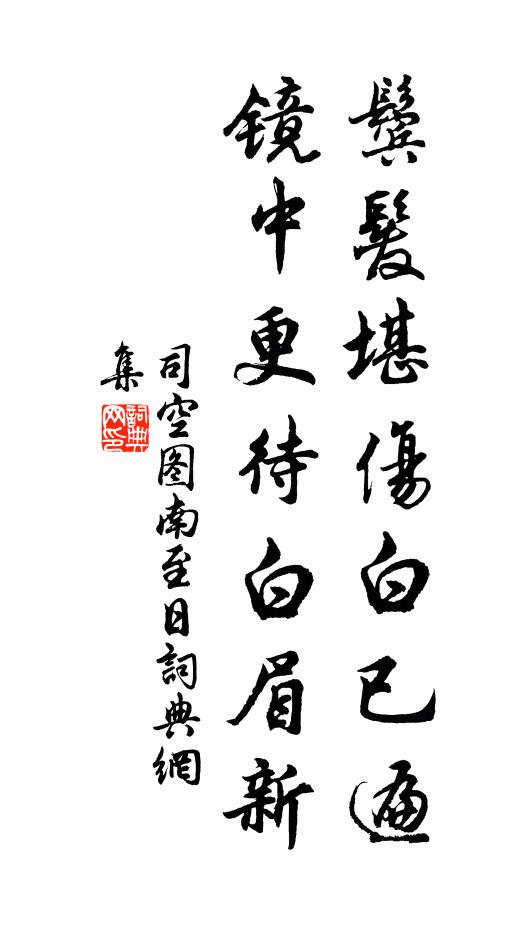 鬢髮堪傷白已遍
鏡中更待白眉新
司空图南至日詞典網
集
詞典网印